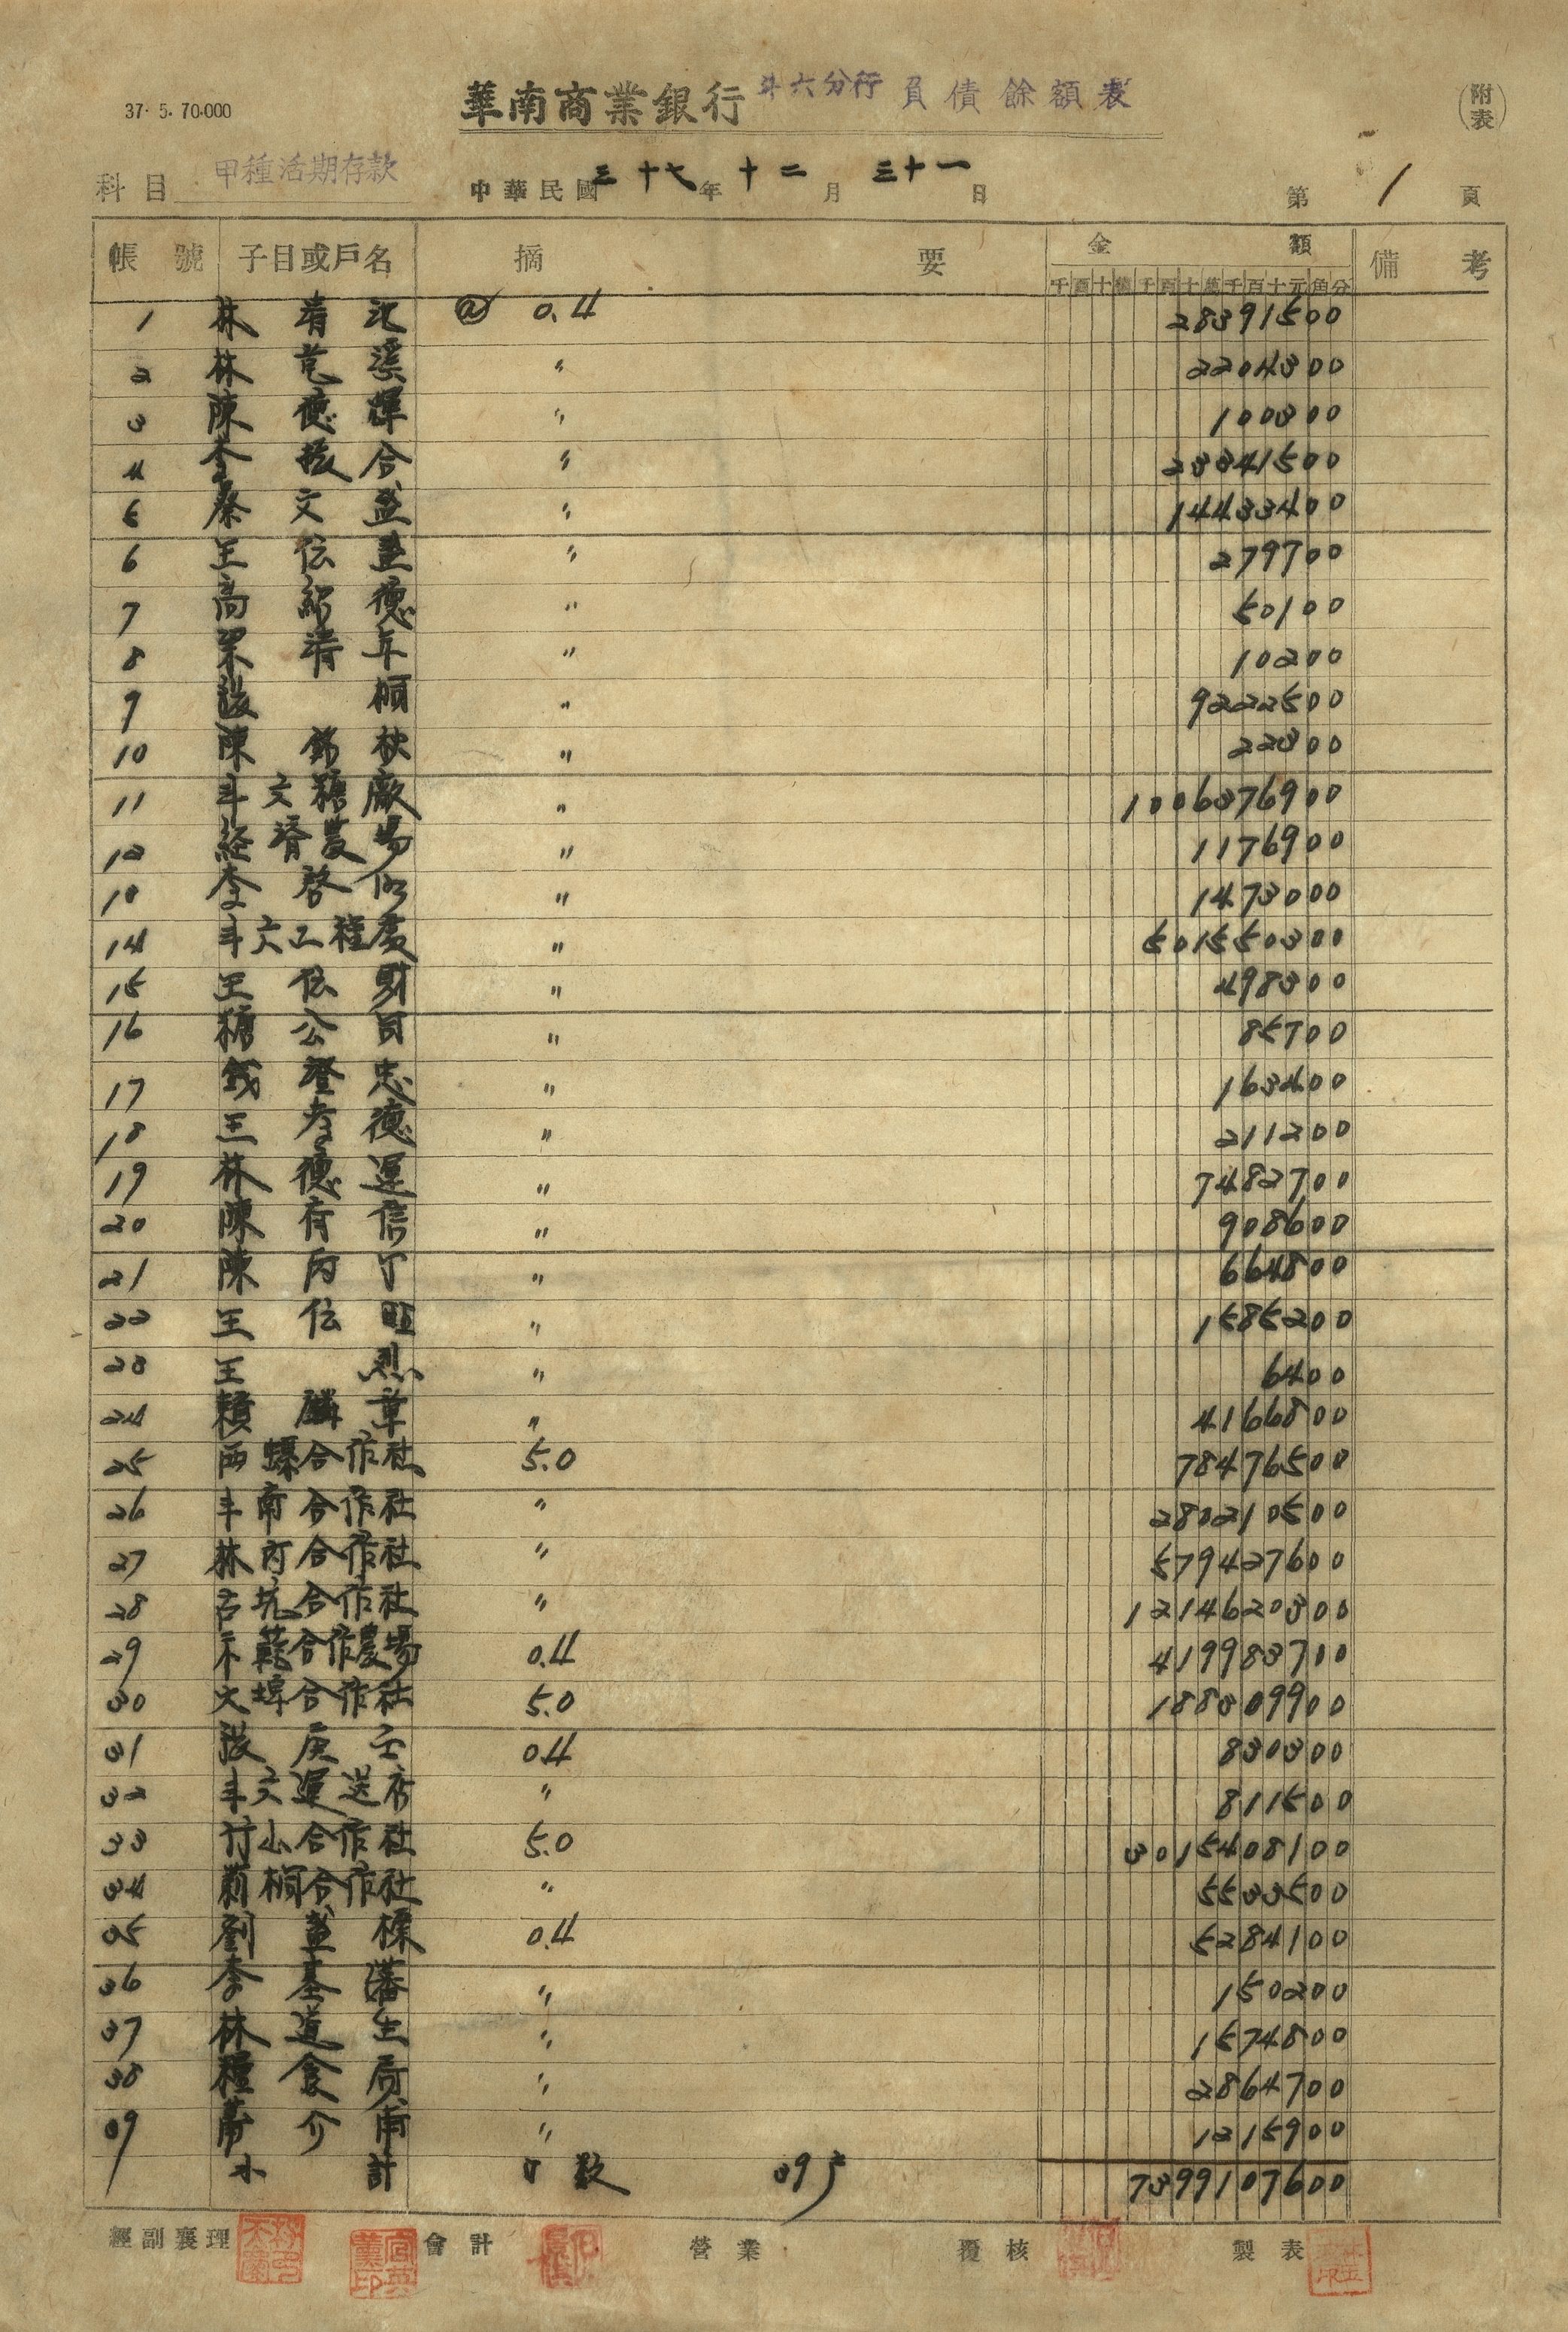 37. 5. 70.000
華南商業銀行 斗六分行 負債餘額表
(附表)
科目 甲種活期存款 中華民國三十七年十二月三十一日 第1頁
帳號 子目或戶名 摘要 金額 備考
千百十億千百十萬千百十元角分
1 林清 @ 0.4 28391500
2 林 溪 〃 2204300
3 陳德輝 〃 100300
4 李 合 〃 23341500
5 蔡文益 〃 14433400
6 王伝益 〃 279700
7 高 德 〃 50100
8 清年 〃 10200
9 〃 9222500
10 陳錦 〃 22300
11 斗六糖廠 〃 1006376900
12 経 農場 〃 1176900
13 李啓 〃 1473000
14 斗六工程處 〃 501550300
15 王伝財 〃 498300
16 糖公司 〃 85700
17 錢澄忠 〃 163400
18 王孝德 〃 211200
19 林德運 〃 7482700
20 陳 信 〃 908600
21 陳丙丁 〃 664800
22 王伝旺 〃 1585200
23 王烈 〃 6400
24 賴麟章 〃 4166800
25 西螺合作社 5.0 78476500
26 斗南合作社 〃 280210500
27 林內合作社 〃 579427600
28 古坑合作社 〃 1214620300
29 示範合作農場 0.4 419983700
30 大埤合作社 5.0 188309900
31 張庚壬 0.4 830300
32 斗六運送店 〃 811500
33 竹山合作社 5.0 3015408100
34 莿桐合作社 〃 5533500
35 劉益標 0.4 5284100
36 李基藩 〃 150200
37 林道生 〃 1574800
38 糧食局 〃 2864700
39 介甫 〃 1215900
小計 口數 39 7399107600
經副襄理 會計 營業 覆核 製表